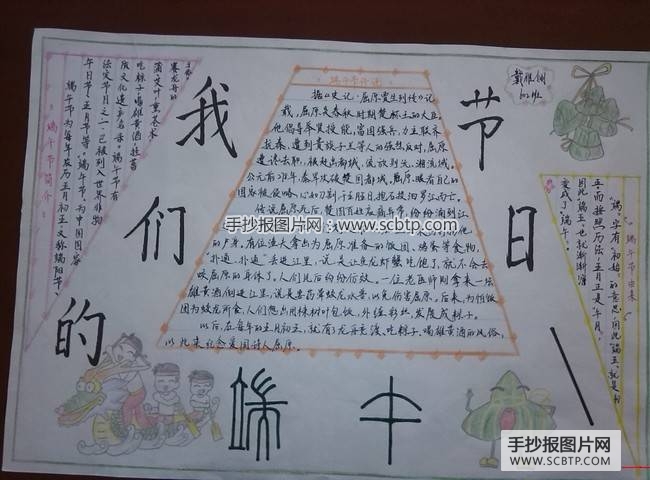 我们的节日
端午
端午节简介
端午节为每年农历五月初五，又称端阳节、
午日节、五月节等。端午节为中国国家
法定节日之一，已被列入世界非物
族文化遗产名录。端午节有
吃粽子、喝雄黄酒、挂菖
蒲、艾叶、熏苍术
赛龙舟的
据《史记·屈原贾生列传》记
载，屈原是春秋时期楚怀王的大臣。
他倡导举贤授能，富国强兵，力主联齐
抗秦，遭到贵族子兰等人的强烈反对，屈原
遭谗去职，被赶出都城，流放到沅、湘流域。
公元前278年，秦军攻破楚国都城。屈原眼看自己的
于五月五日，抱石投汨罗江而亡。
传说屈原死后，楚国百姓哀痛异常，纷纷涌到江
的尸身。有位渔夫拿出为屈原准备的饭团、鸡蛋等食物，
“扑通、扑通”丢进江里，说是让鱼龙虾蟹吃饱了，就不会去
咬屈原的身体了。人们见后纷纷仿效。一位老医师则拿来一坛
雄黄酒倒进江里，说是要药晕蛟龙水兽，以免伤害屈原。后来，为怕饭
团为蛟龙所食，人们想出用楝树叶包饭，外缠彩丝，发展成粽子。
以后，在每年的五月初五，就有了龙舟竞渡、吃粽子、喝雄黄酒的风俗，
以此来纪念爱国诗人屈原。
端午节由来
“端”字有“初始”的意思，因此“端五”就是“初
五”。而按照历法五月正是“午”月，
因此“端五”也就渐渐演
变成了“端午”。
手抄报图片网-www.scbtp.com
手抄报图片网
WWW.SCBTP.COM